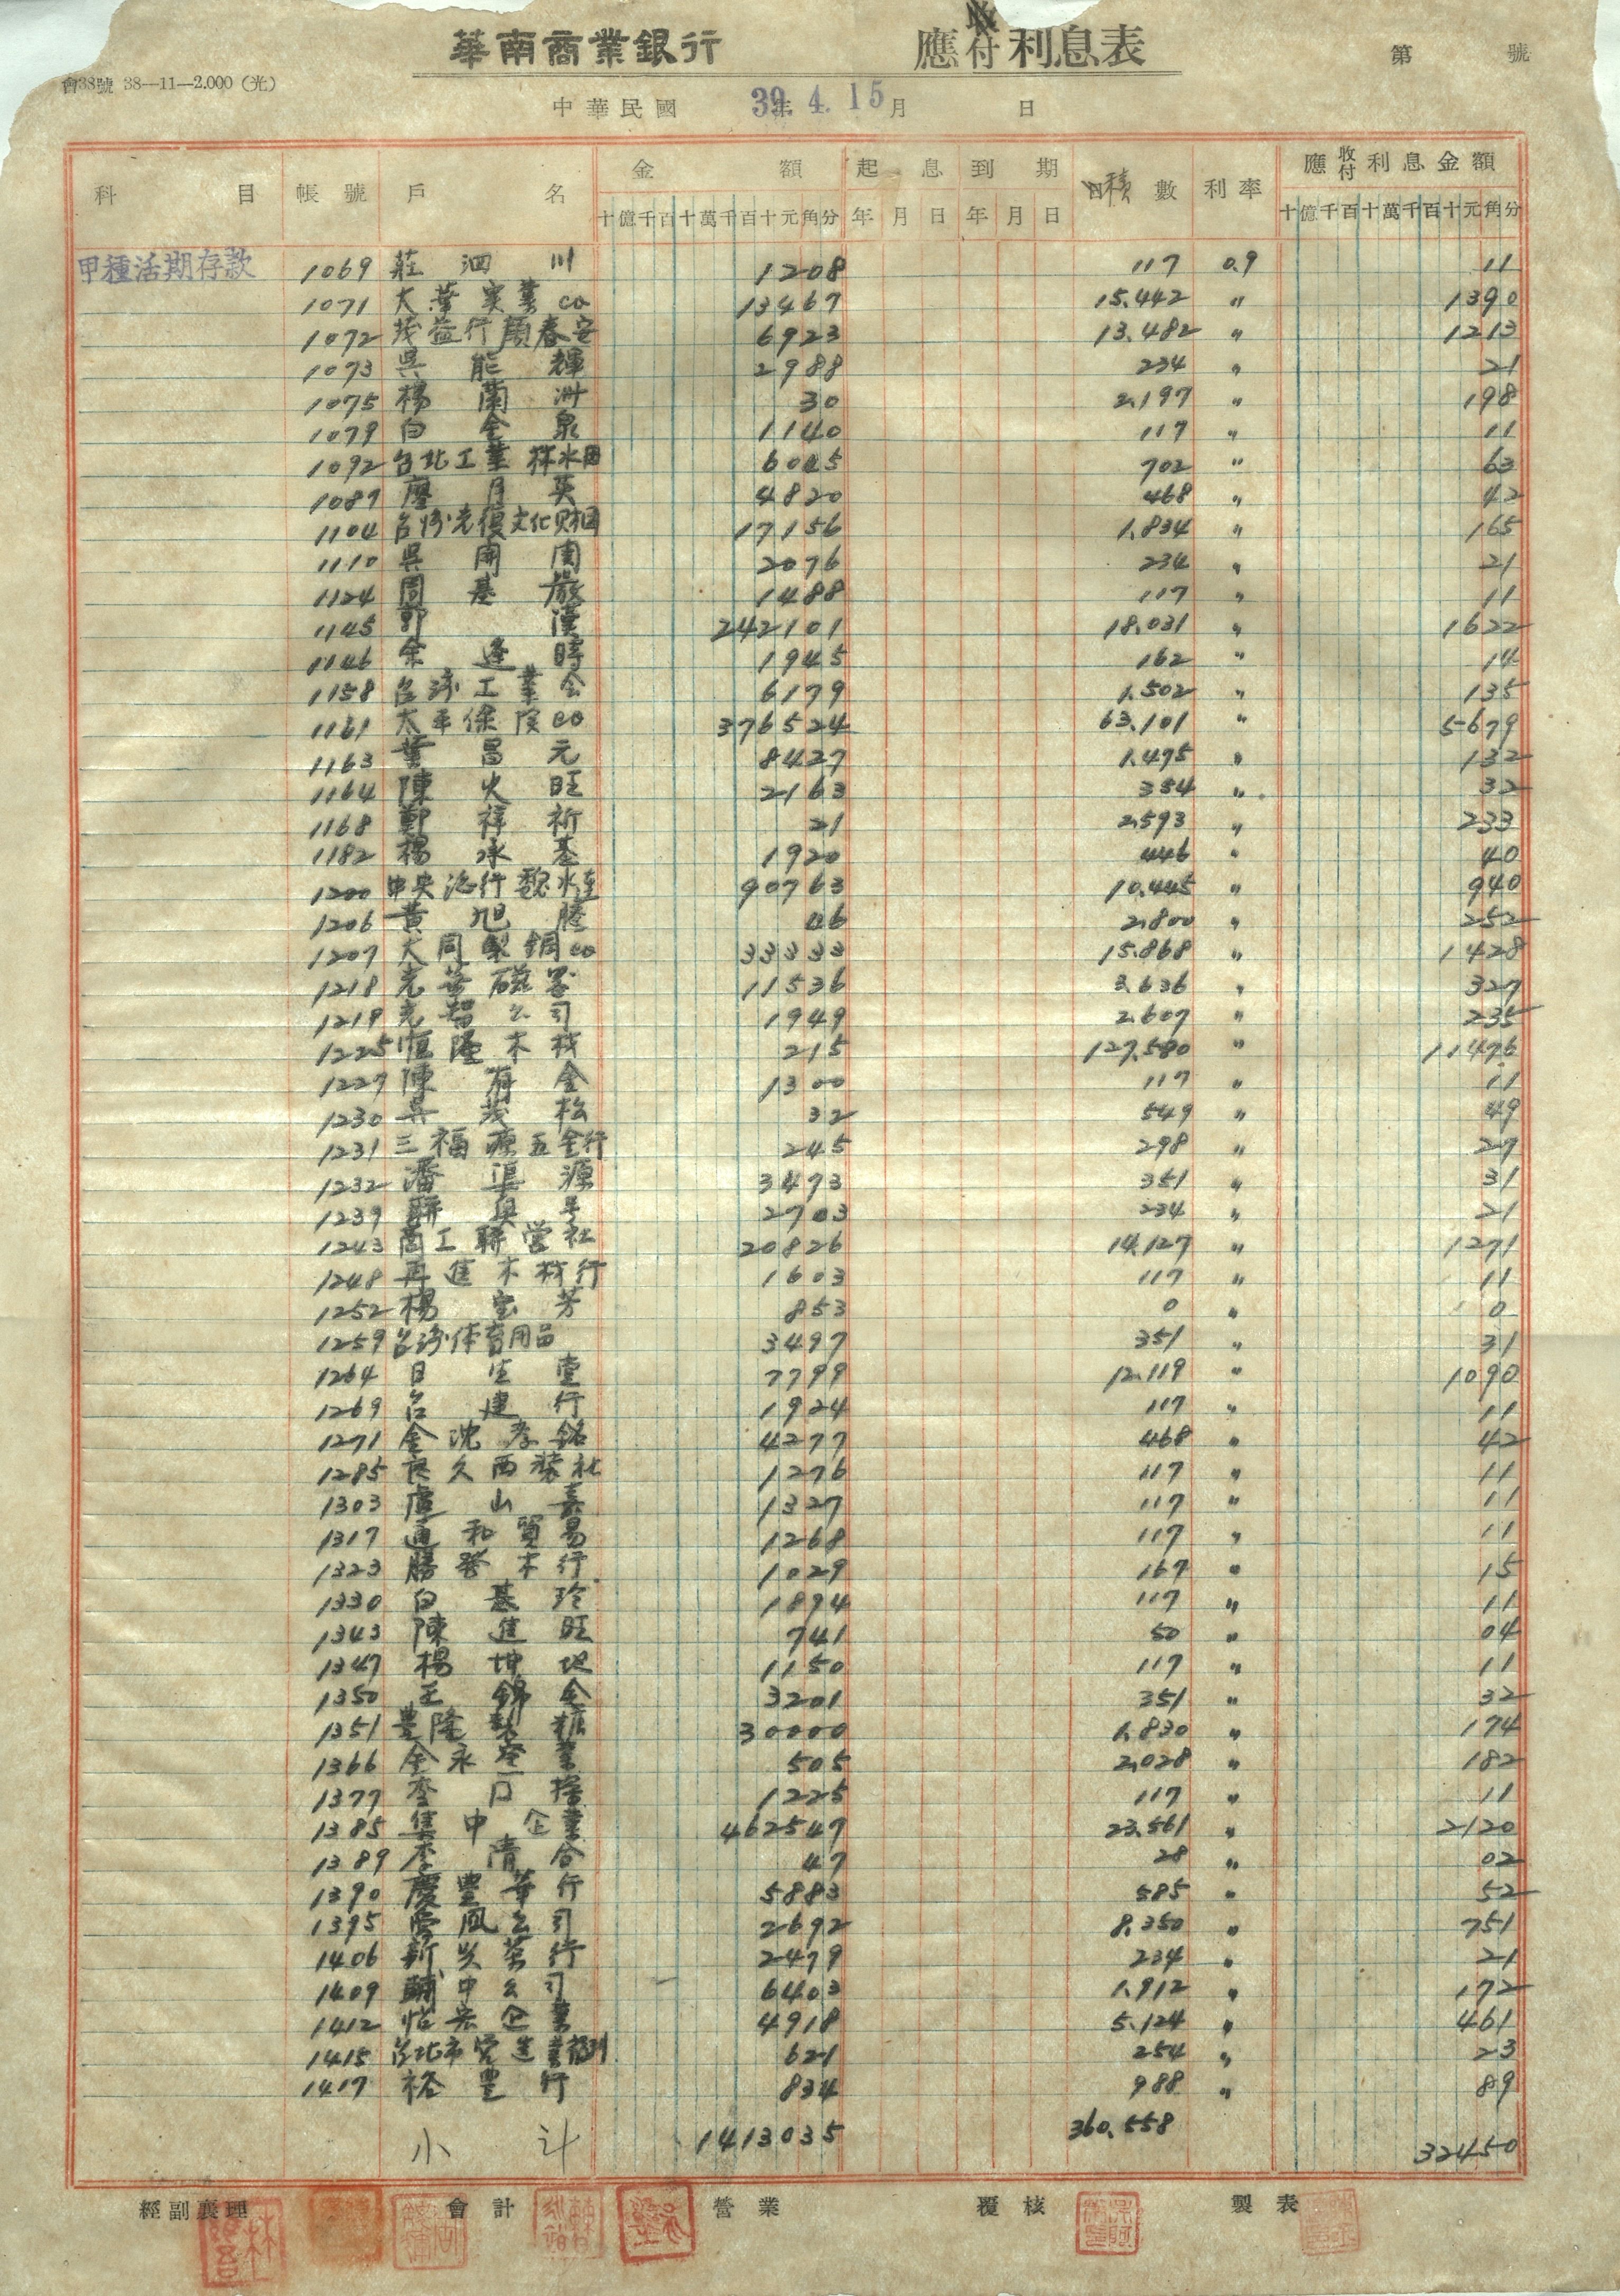 華南商業銀行 應付利息表 第 號
會38號 38—11—2.000 (光)
中華民國 年 月 日
39. 4. 15
科 目 帳 號 戶 名 金 額 起 息 到 期 積 數 利 率 應收付利息金額
十億千百十萬千百十元角分 年 月 日 年 月 日 十億千百十萬千百十元角分
甲種活期存款 1069 莊 泗 川 1208 117 0.9 11
1071 大 華 実 業 co 13467 15.442 〃 1390
1072 茂益行顏春安 6923 13.482 〃 1213
1073 吳 能 輝 2988 234 〃 21
1075 楊 蘭 洲 30 2.197 〃 198
1079 白 金 泉 1140 117 〃 11
1092 台北工業 林水田 6015 702 〃 63
1087 廖 月 英 4820 468 〃 42
1104 台湾光復文化財団 17156 1.834 〃 165
1110 吳 開 團 2076 234 〃 21
1124 周 基 嚴 1488 117 〃 11
1145 郭 漢 242101 18.031 〃 1622
1146 余 逢 時 1945 162 〃 14
1158 台湾工業会 6179 1.502 〃 135
1161 太平保険co 376524 63.101 〃 5679
1163 葉 昌 元 8427 1.475 〃 132
1164 陳 火 旺 2163 354 〃 32
1168 鄭 祥 祈 21 2.593 〃 233
1182 楊 承 基 1920 446 〃 40
1200 中央 行 水 90763 10.445 〃 940
1206 黃 旭 勝 46 2.800 〃 252
1207 大同製鋼co 33333 15.868 〃 1428
1218 光華磁 11536 3.636 〃 327
1219 光智公司 1949 2.607 〃 235
1225 恒隆木材 215 127.580 〃 11476
1227 陳 有 金 1300 117 〃 11
1230 吳 茂 松 32 549 〃 49
1231 三福源五金行 245 298 〃 27
1232 潘 渠 源 3473 351 〃 31
1239 聯 興 号 2703 234 〃 21
1243 商工聯營社 20826 14.127 〃 1271
1248 再進木材行 1603 117 〃 11
1252 楊 宝 芳 853 0 〃 0
1259 台湾体育用品 3497 351 〃 31
1264 日 生 堂 7799 12.119 〃 1090
1269 台 建 行 1924 117 〃 11
1271 金 沈 孝 銘 4277 468 〃 42
1285 良久西裝社 1276 117 〃 11
1303 盧 山 嘉 1327 117 〃 11
1317 通和貿易 1268 117 〃 11
1323 勝發木行 1029 167 〃 15
1330 白 基 珍 1894 117 〃 11
1343 陳 進 旺 741 50 〃 04
1347 楊 坤 地 1150 117 〃 11
1350 王 錦 全 3201 351 〃 32
1351 豊隆製糖 30000 1.830 〃 174
1366 金永 業 505 2.028 〃 182
1377 李 1225 117 〃 11
1385 集中企業 462547 23.561 〃 2120
1389 李 清 合 47 28 〃 02
1390 慶豊華行 5883 585 〃 52
1395 公司 2692 8.350 〃 751
1406 新 行 2479 234 〃 21
1409 輔中公司 6403 1.912 〃 172
1412 怡宏企業 4918 5.124 〃 461
1415 台北市営造業 621 254 〃 23
1417 裕 豊 行 834 988 〃 89
小 計 1413035 360.558 32450
經副襄理 會 計 營 業 覆 核 製 表